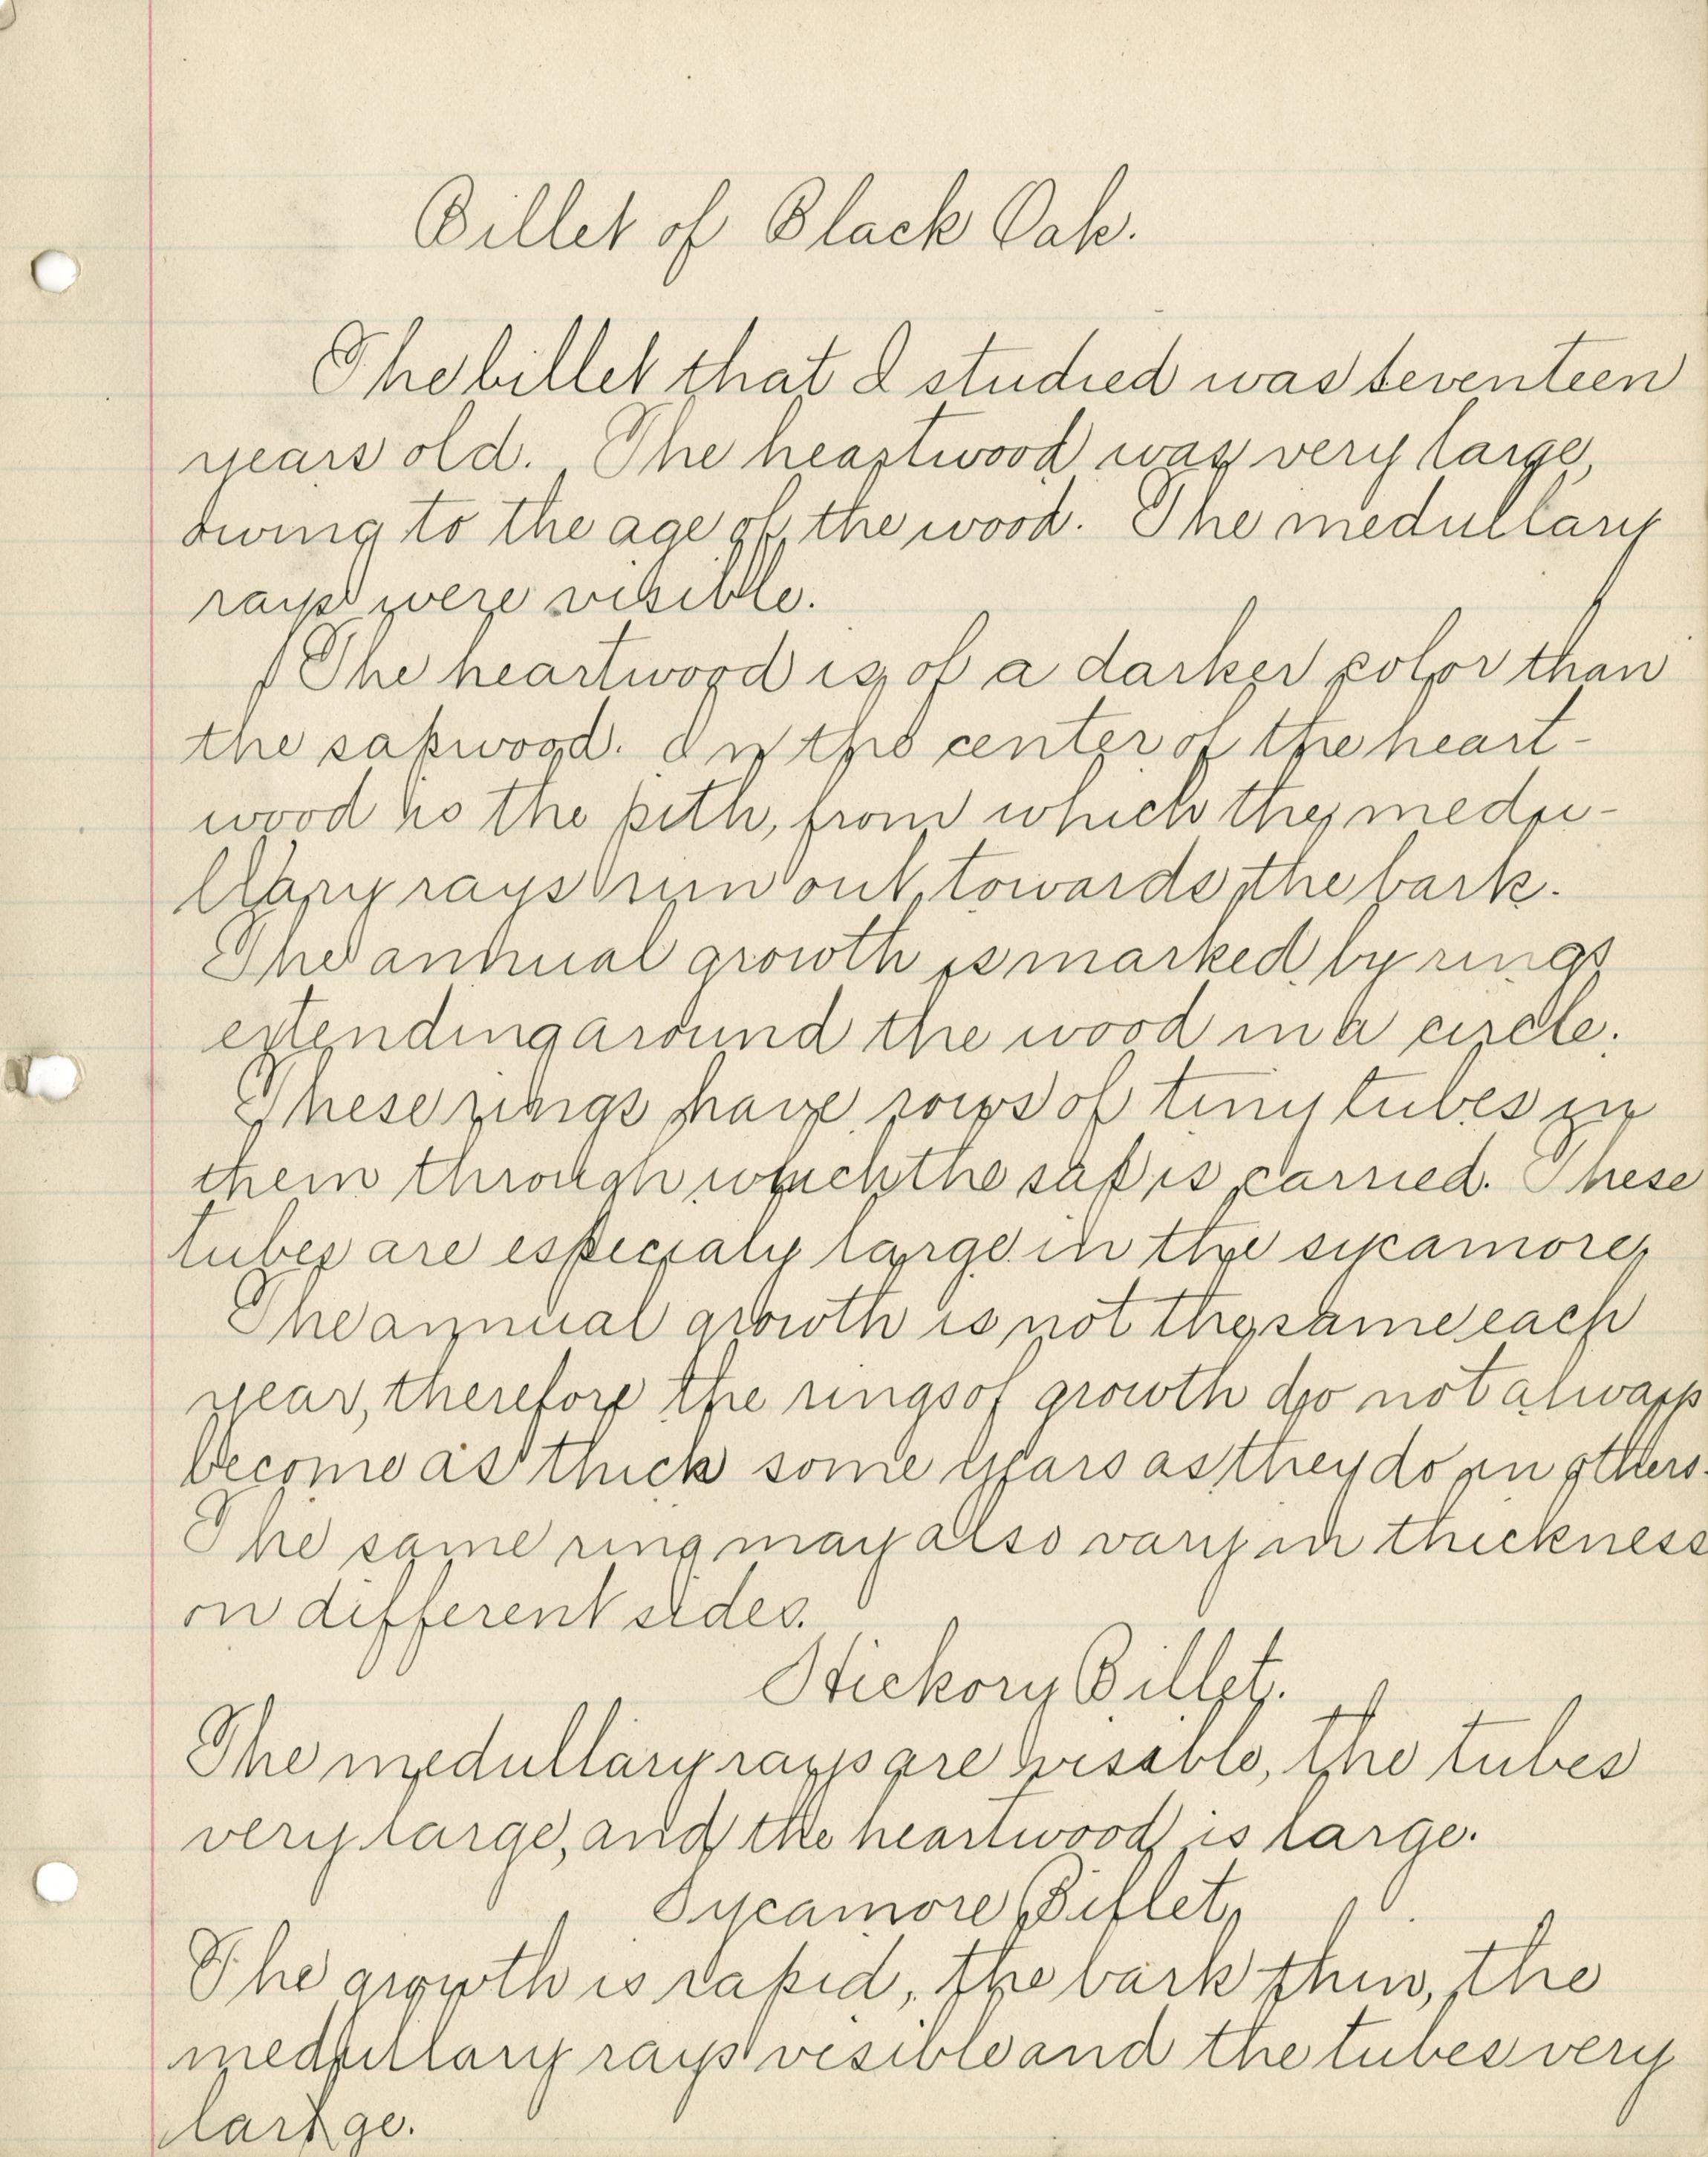 Billet of Black Oak.
The billet that I studied was seventeen
years old. The heartwood was very large,
owing to the age of the wood. The medullary
rays were visible.
The heartwood is of a darker color than
the sapwood. In the center of the heart-
wood is the pith, from which the medu-
llary rays run out towards the bark.
The annual growth is marked by rings
extending around the wood in a circle.
These rings have rows of tiny tubes in
them through which the sap is carried. These
tubes are especialy large in the sycamore.
The annual growth is not the same each
year, therefore the rings of growth do not always
become as thick some years as they do in others.
The same ring may also vary in thickness
on different sides.
Hickory Billet.
The medullary rays are visable, the tubes
very large, and the heartwood is large.
Sycamore Billet.
The growth is rapid, the bark thin, the
medullary rays visible and the tubes very
large.